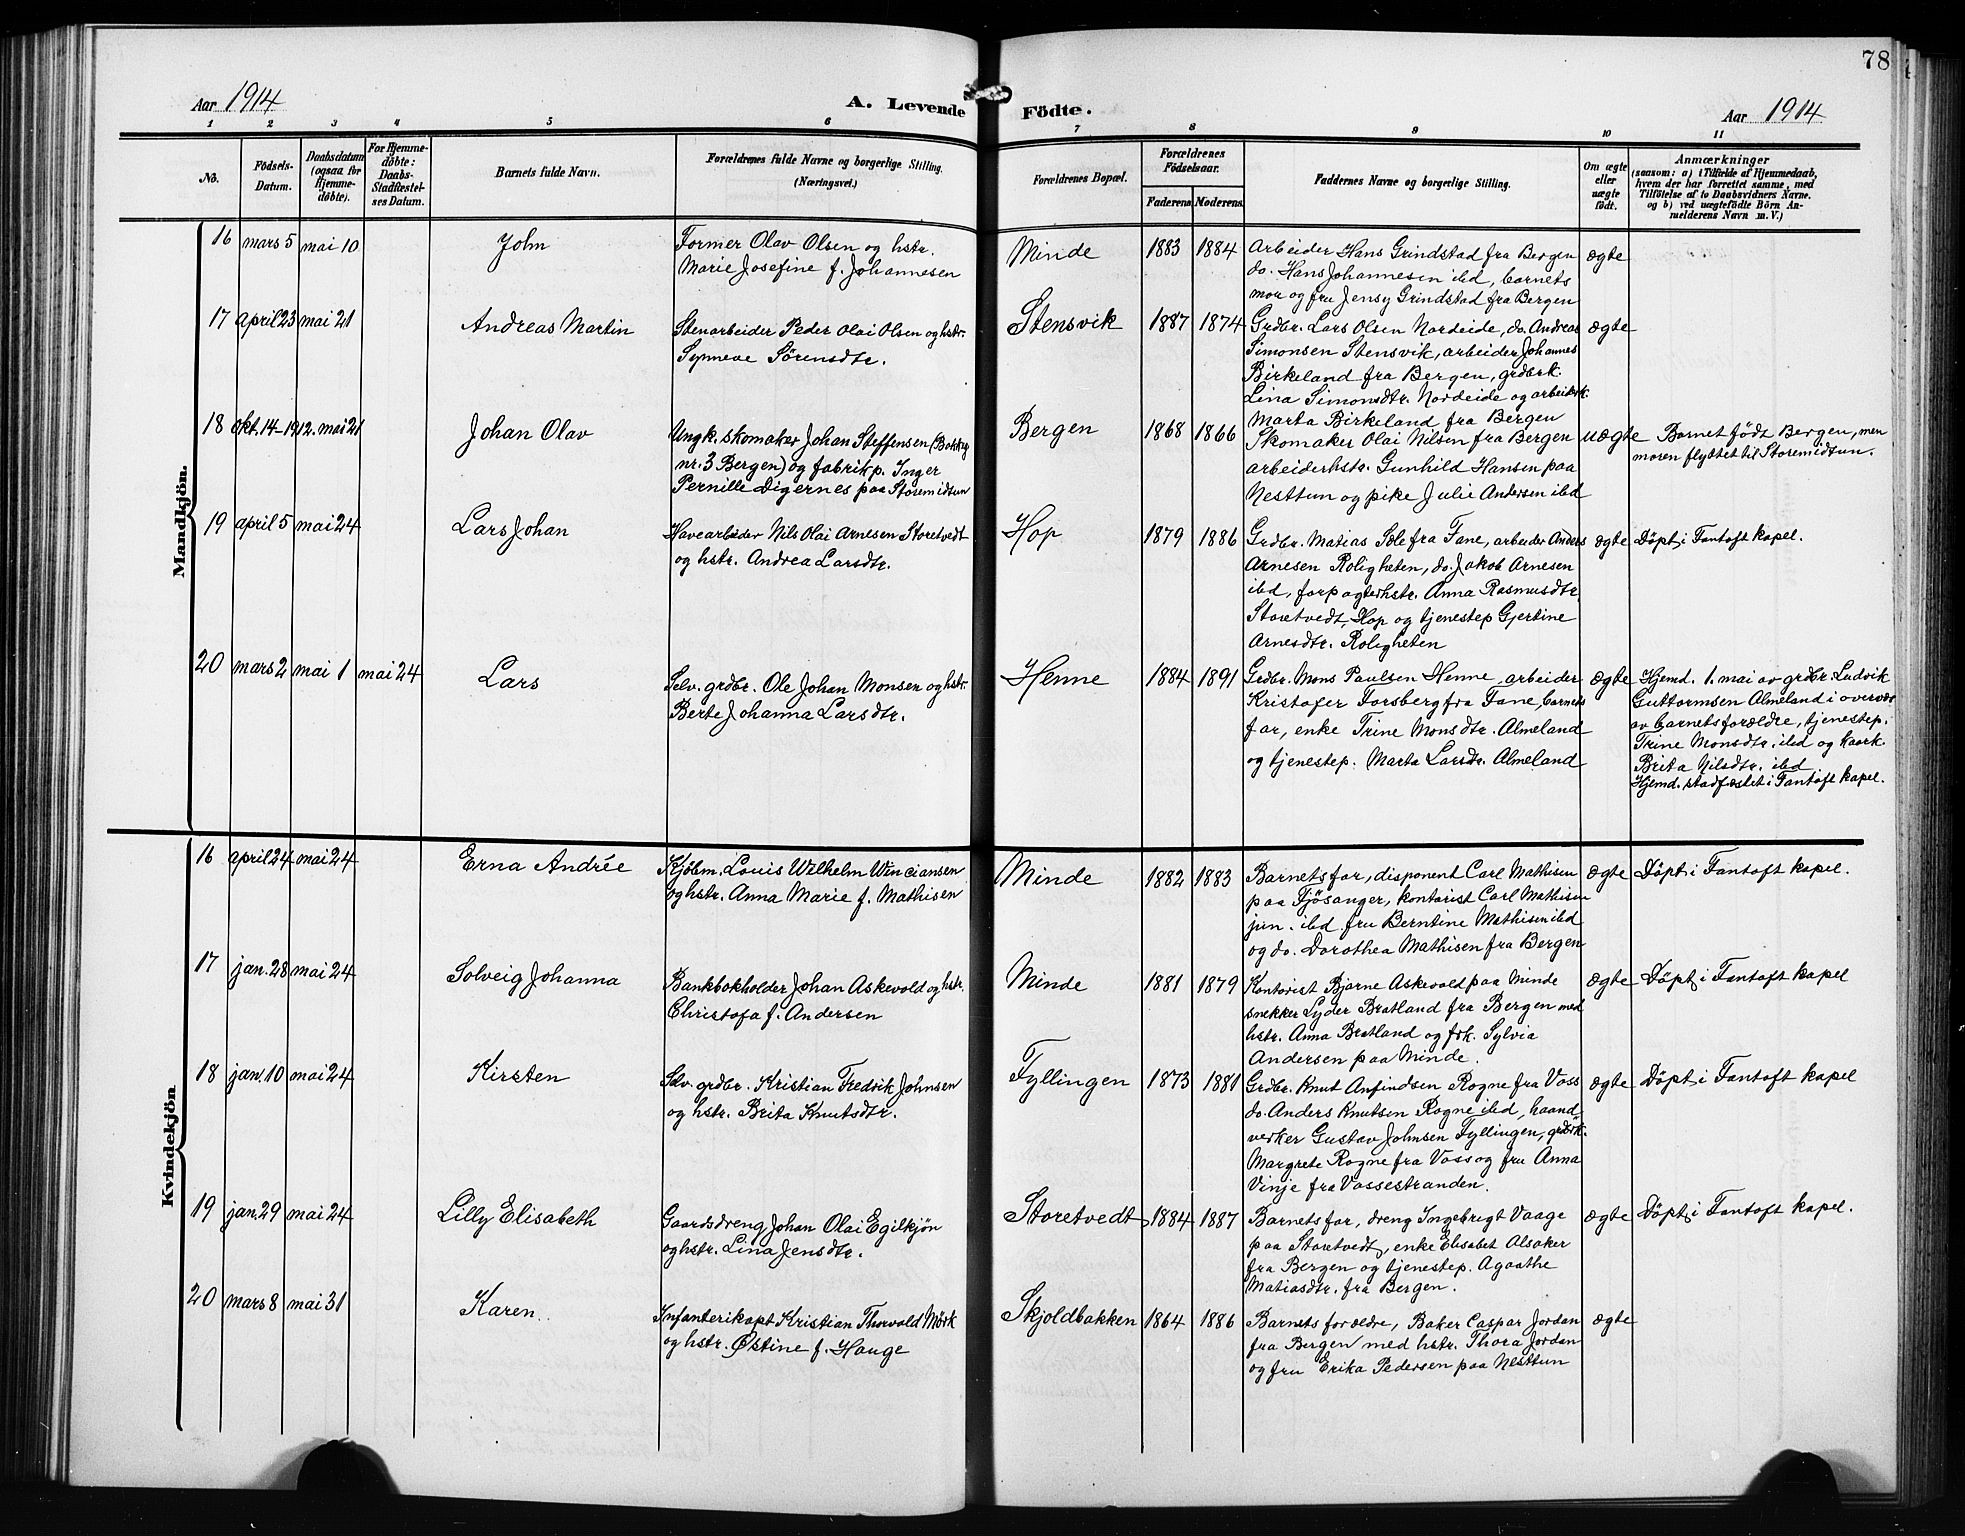 78
Aar 1914
A. Levende Födte.
Aar 1914
1 2 3 4 5 6 7 8 9 10 11
No.
Födsels-
Datum.
Daabsdatum
(ogsaa for
Hjemme-
döbte).
For Hjemme-
döbte:
Daabs-
Stadfæstel-
ses Datum.
Barnets fulde Navn.
Forældrenes fulde Navne og borgerlige Stilling.
(Næringsvei.)
Forældrenes Bopæl.
Forældrenes
Födselsaar.
Faderens
Moderens
Faddernes Navne og borgerlige Stilling.
Om ægte
eller
uægte
födt.
Anmærkninger
(saasom: a) i Tilfælde af Hjemmedaab,
hvem der har forrettet samme, med
Tilföielse af to Daabsvidners Navne.
og b) ved uægtefödte Börn An-
melderens Navn m. V.)
Mandkjön.
16 mars 5 mai 10
John
Former Olav Olsen og hstr.
Marie Josefine f. Johannesen
Minde 1883 1884
Arbeider Hans Grindstad fra Bergen
do. Hans Johannesen ibd, barnets
mor og fru Jensy Grindstad fra Bergen
ægte
17 april 23 mai 21
Andreas Martin
Stenarbeider Peder Olai Olsen og hstr.
Synneve Sørensdtr.
Stensvik 1887 1874
Grdbr. Lars Olsen Nordeide, do. Andreas
Simonsen Stensvik, arbeider Johannes
Birkeland fra Bergen, grdbrk.
Lina Simonsdtr. Nordeide og arbeiderk.
Marta Birkeland fra Bergen
ægte
18 okt. 14-1912. mai 21
Johan Olav
Ungk. skomaker Johan Steffensen
nr. 3 Bergen) og fabrikp. Inger
Pernille Digernes paa Storemidtun
Bergen 1868 1866
Skomaker Olai Nilsen fra Bergen
arbeiderhstr. Gunhild Hansen paa
Nesttun og pike Julie Andersen ibd
uægte
Barnet födt Bergen, men
moren flyttet til Storemidtun.
19 april 5 mai 24
Lars Johan
Havearbeider Nils Olai Arnesen Storetvedt
og hstr. Andrea Larsdtr.
Hop 1879 1886
Grdbr. Matias Sæle fra Fane, arbeider Anders
Arnesen Roligheten, do. Jakob Arnesen
ibd, forpagterhstr. Anna Rasmusdtr.
Storetvedt, Hop og tjenestep Gjertine
Arnesdtr. Roligheten
ægte
Döpt i Fantoft kapel.
20 mars 2 mai 1 mai 24
Lars
Selv. grdbr. Ole Johan Monsen og hstr.
Berte Johanna Larsdtr.
Henne 1884 1891
Grdbr. Mons Paulsen Henne, arbeider
Kristofer Forsberg fra Fane, barnets
far, enke Trine Monsdtr. Almeland
og tjenestep. Marta Larsdr. Almeland
ægte
Hjemd. 1. mai av grdbr. Ludvik
Guttormsen Almeland i overvær
av barnets forældre, tjenestep.
Trine Monsdtr. ibd og kaark.
Brita Nilsdtr. ibd
Hjemd. stadfæstet i Fantoft kapel.
Kvindekjön
16 april 24 mai 24
Erna Andrée
Kjöbm. Louis Wilhelm Winciansen
og hstr. Anna Marie f. Mathisen
Minde 1882 1883
Barnets far, disponent Carl Mathisen
paa Fjösanger, kontorist Carl Mathisen
jun. ibd fru Berntine Mathisen ibd
og do. Dorothea Mathisen fra Bergen
ægte
Döpt i Fantoft kapel.
17 jan. 28 mai 24
Solveig Johanna
Bankbokholder Johan Askevold og hstr.
Christofa f. Andersen
Minde 1881 1879
Kontorist Bjarne Askevold paa Minde
snekker Lyder Bratland fra Bergen med
hstr. Anna Bratland og frk. Sylvia
Andersen paa Minde.
ægte
Döpt i Fantoft kapel
18 jan. 10 mai 24
Kirsten
Selv. grdbr. Kristian Fredrik Johnsen
og hstr. Brita Knutsdtr.
Fyllingen 1873 1881
Grdbr. Knut Anfindsen Rogne fra Voss
do. Anders Knutsen Rogne ibd, haand-
verker Gustav Johnsen Fyllingen, grdbrk.
Margrete Rogne fra Voss og fru Anna
Vinje fra Vossestranden.
ægte
Döpt i Fantoft kapel
19 jan. 29 mai 24
Lilly Elisabeth
Gaardsdreng Johan Olai Egilkjön
og hstr. Lina Jensdtr.
Storetvedt 1884 1887
Barnets far, dreng Ingebrigt Vaage
paa Storetvedt, enke Elisabet Alsaker
fra Bergen og tjenestep. Agaathe
Matiasdtr. fra Bergen.
ægte
Döpt i Fantoft kapel.
20 mars 8 mai 31
Karen
Infanterikapt Kristian Thorvald Mörk
og hstr. Østine f. Hauge
Skjoldbakken 1864 1886
Barnets forældre, Baker Caspar Jordan
fra Bergen med hstr. Thora Jordan
og fru Erika Pedersen paa Nesttun
ægte